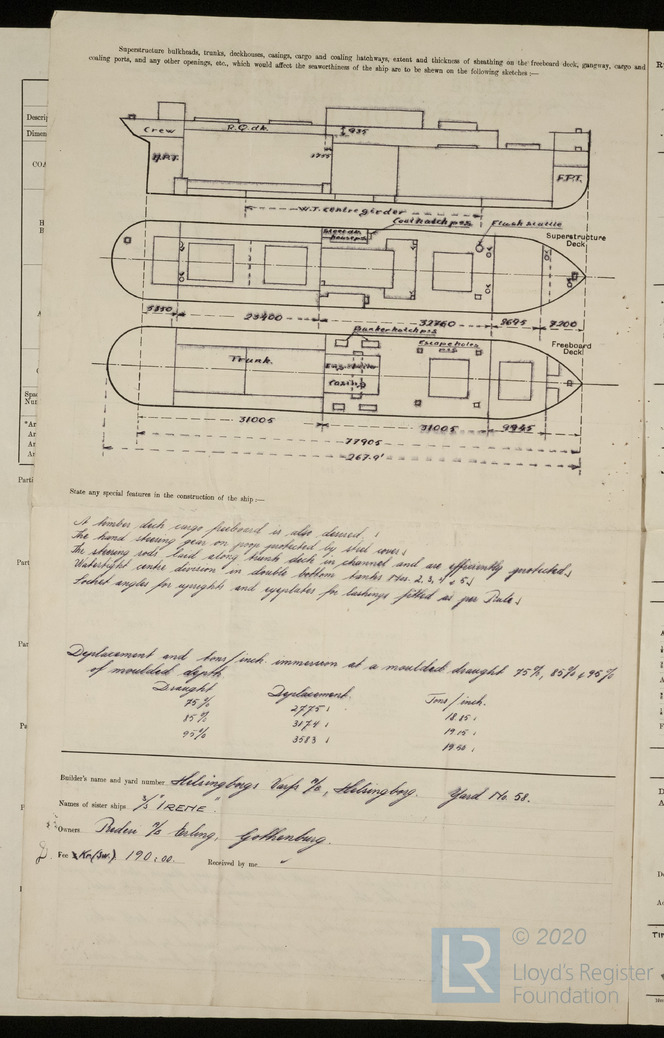 Superstructure bulkheads, trunks, deckhouses, casings, cargo and coaling hatchways, extent and thickness of sheathing on the freeboard deck, gangway, cargo and
coaling ports, and any other openings, etc., which would affect the seaworthiness of the ship are to be shewn on the following sketches :—
Crew
R.Q.dk.
935
A.P.T.
F.P.T.
W.T. centre girder
Coal hatch p&s
Flush scuttle
Superstructure
Deck
5350
23400
32760
9695
7200
Bunker hatch p&s
Escape holes
p&s
Freeboard
Deck
Trunk.
Casing
31005
31005
9945
77905
267.9'
State any special features in the construction of the ship :—
A timber deck cargo freeboard is also desired.
The hand steering gear on poop protected by steel cover.
The steering rods laid along trunk deck in channel and are efficiently protected.
Watertight centre division in double bottom tanks Nos. 2, 3, 4 & 5.
Socket angles for uprights and eyeplates for lashings fitted as per Rule.
Displacement and tons/inch immersion at a moulded draught 75%, 85% & 95%
of moulded depth
Draught Displacement. Tons/inch.
75% 2775 18.85
85% 3174 19.15
95% 3583 19.50
Builder's name and yard number Helsingborgs Varfs A/B, Helsingborg. Yard No. 58.
Names of sister ships S/S "IRENE"
Owners Rederi A/B Erling, Gothenburg.
Fee Kr.(Sw.) 190.00. Received by me
LR
© 2020
Lloyd's Register
Foundation